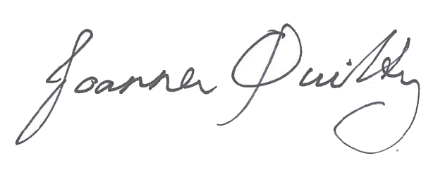 Joanne Quilty